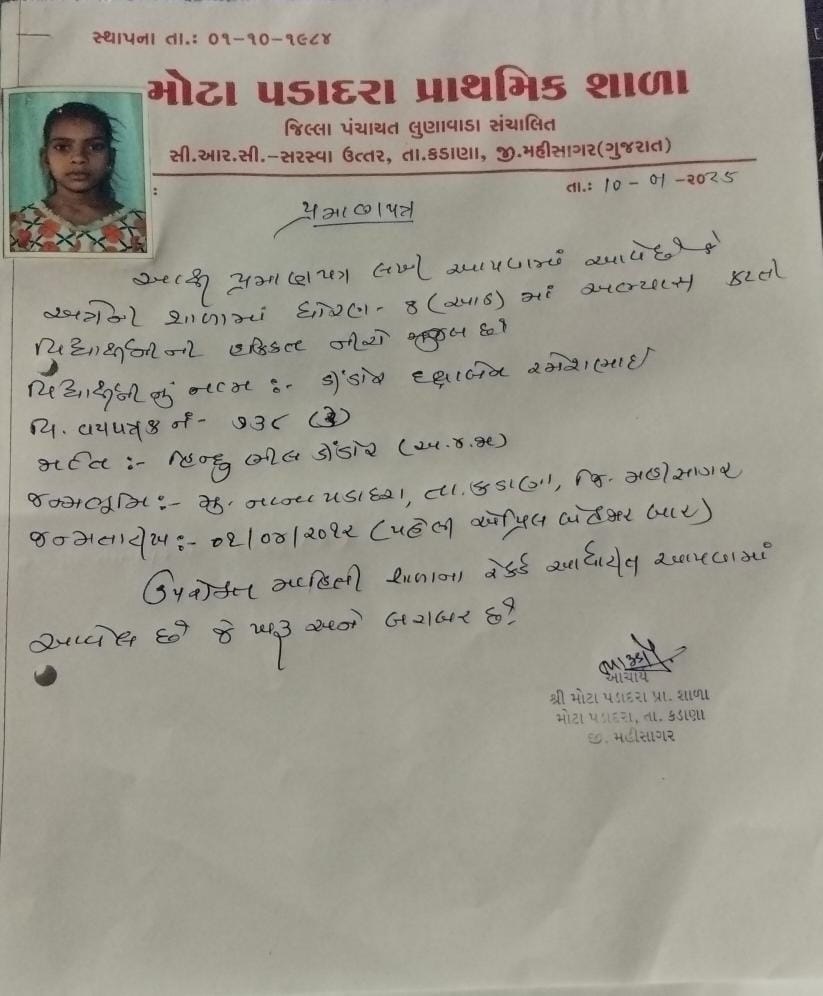 સ્થાપના તા.: ૦૧-૧૦-૧૯૮૪
મોટા પડાદરા પ્રાથમિક શાળા
જિલ્લા પંચાયત લુણાવાડા સંચાલિત
સી.આર.સી.-સરસ્વા ઉત્તર, તા.કડાણા, જી.મહીસાગર(ગુજરાત)
તા.: 10 - 01 -૨૦૨૫
પ્રમાણપત્ર
આથી પ્રમાણપત્ર લખી આપવામાં આવે છે કે
અત્રેની શાળામાં ધોરણ - ૮ (આઠ) માં અભ્યાસ કરતી
વિદ્યાર્થીની ની હકિકત નીચે મુજબ છે
વિદ્યાર્થીની નું નામ :- ડીંડોર દક્ષાબેન રમેશભાઈ
વિ. વયપત્રક નં - ૭૩૮
જાતિ :- હિન્દુ ભીલ ડીંડોર (અ.જ.જા)
જન્મભૂમિ:- મુ. નાના પડાદરા, તા. કડાણા, જિ. મહીસાગર
જન્મતારીખ :- ૦૧/૦૪/૨૦૧૨ (પહેલી એપ્રિલ બે હજાર બાર)
ઉપરોક્ત માહિતી શાળાના રેકર્ડ આધારિત આપવામાં
આવેલ છે જે ખરૂ અને બરાબર છે.
આચાર્ય
શ્રી મોટા પડાદરા પ્રા. શાળા
મોટા પડાદરા, તા. કડાણા
જી. મહીસાગર